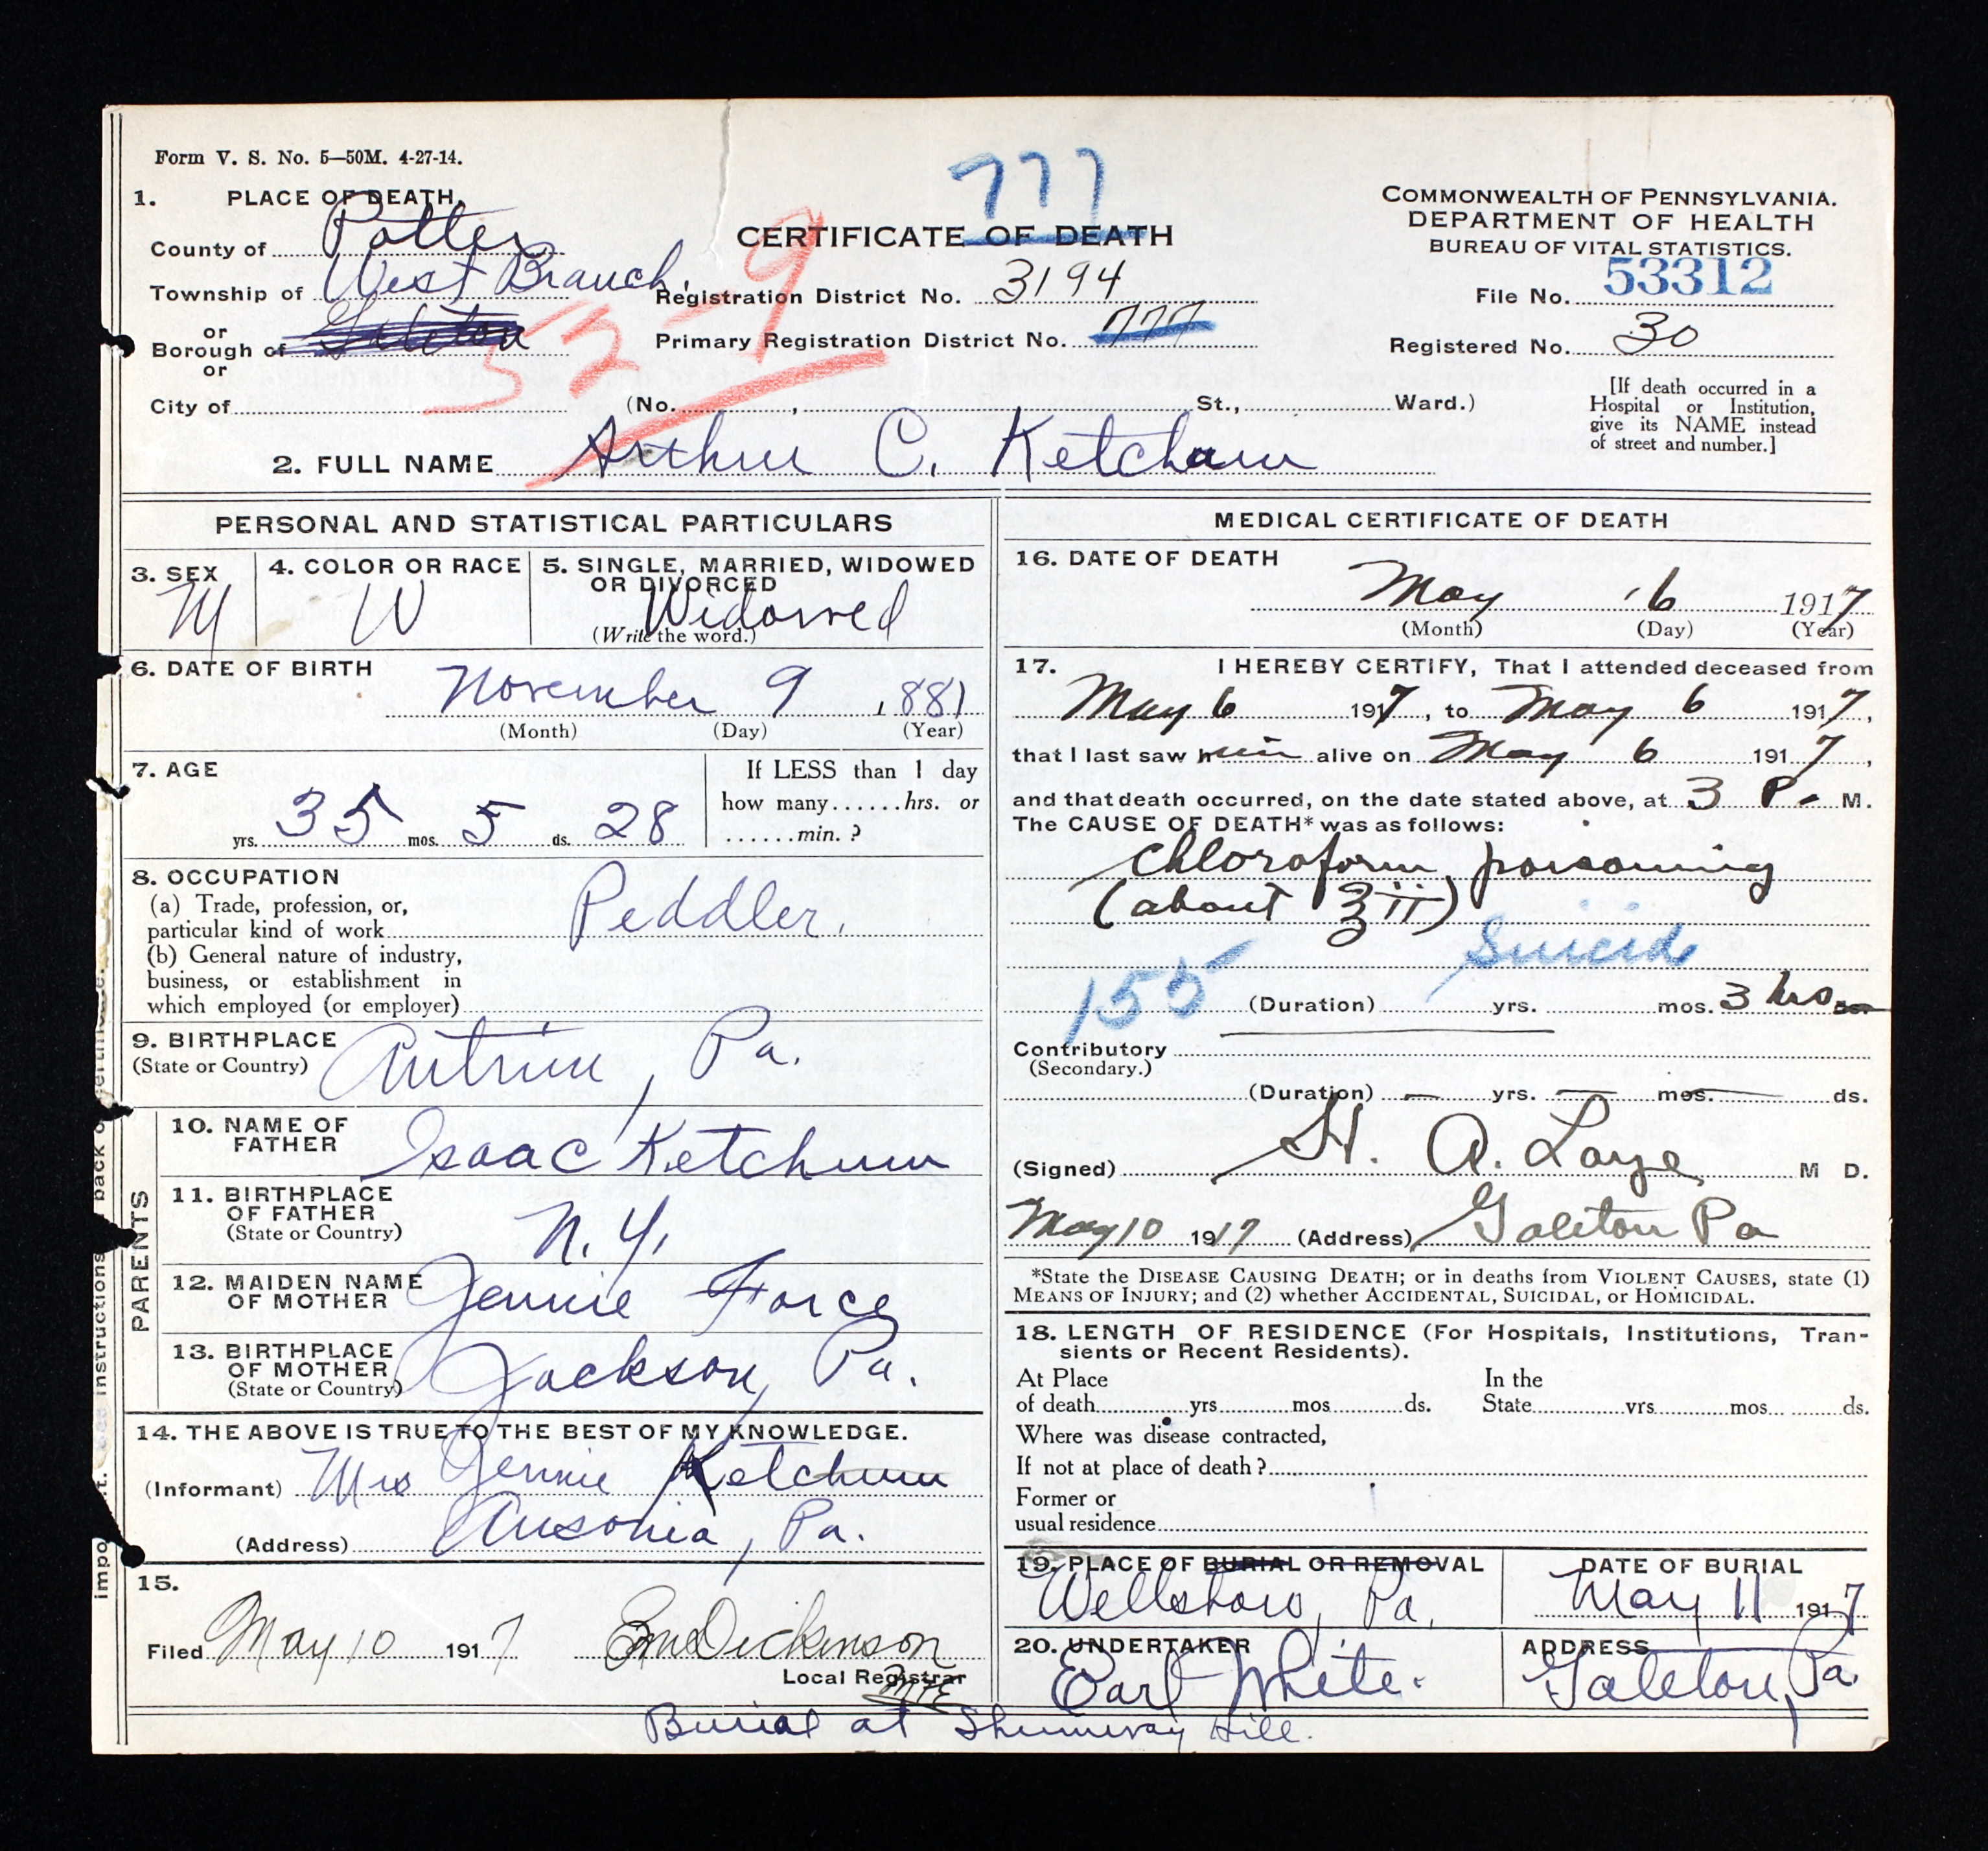 Form V. S. No. 5—50M. 4-27-14.
777
COMMONWEALTH OF PENNSYLVANIA.
DEPARTMENT OF HEALTH
BUREAU OF VITAL STATISTICS.
CERTIFICATE OF DEATH
1. PLACE OF DEATH,
County of Potter
Township of West Branch.
or
Borough of Galeton
or
City of
52-9
Registration District No. 3194
Primary Registration District No. 777
File No. 53312
Registered No. 30
(No. , St., Ward.)
[If death occurred in a
Hospital or Institution,
give its NAME instead
of street and number.]
2. FULL NAME Arthur C. Ketcham
PERSONAL AND STATISTICAL PARTICULARS
3. SEX M
4. COLOR OR RACE W
5. SINGLE, MARRIED, WIDOWED
OR DIVORCED
Widowed
(Write the word.)
6. DATE OF BIRTH
November 9, 1881
(Month) (Day) (Year)
7. AGE
35 yrs. 5 mos. 28 ds.
If LESS than 1 day
how many......hrs. or
......min. ?
8. OCCUPATION
(a) Trade, profession, or,
particular kind of work Peddler.
(b) General nature of industry,
business, or establishment in
which employed (or employer)
9. BIRTHPLACE
(State or Country) Antrim, Pa.
PARENTS
10. NAME OF
FATHER Isaac Ketchum
11. BIRTHPLACE
OF FATHER
(State or Country) N.Y.
12. MAIDEN NAME
OF MOTHER Jennie Force
13. BIRTHPLACE
OF MOTHER
(State or Country) Jackson, Pa.
14. THE ABOVE IS TRUE TO THE BEST OF MY KNOWLEDGE.
(Informant) Mrs Jennie Ketchum
(Address) Ansonia, Pa.
15.
Filed May 10 1917 Dickinson
Local Registrar
MEDICAL CERTIFICATE OF DEATH
16. DATE OF DEATH
May 6 1917
(Month) (Day) (Year)
17. I HEREBY CERTIFY, That I attended deceased from
May 6 1917, to May 6 1917,
that I last saw him alive on May 6 1917,
and that death occurred, on the date stated above, at 3 P. M.
The CAUSE OF DEATH* was as follows:
Chloroform poisoning
(about ʒii)
Suicide
155 (Duration) yrs. mos. 3 hrs ds.
Contributory
(Secondary.)
(Duration) — yrs. — mos. — ds.
(Signed) H. A. Laye M D.
May 10 1917 (Address) Galeton Pa
*State the DISEASE CAUSING DEATH; or in deaths from VIOLENT CAUSES, state (1)
MEANS OF INJURY; and (2) whether ACCIDENTAL, SUICIDAL, or HOMICIDAL.
18. LENGTH OF RESIDENCE (For Hospitals, Institutions, Tran-
sients or Recent Residents).
At Place In the
of death yrs mos ds. State yrs mos ds.
Where was disease contracted,
If not at place of death ?
Former or
usual residence
19. PLACE OF BURIAL OR REMOVAL
Wellsboro, Pa.
DATE OF BURIAL
May 11 1917
20. UNDERTAKER
Earl White.
ADDRESS
Galeton, Pa.
Burial at Shumway Hill.